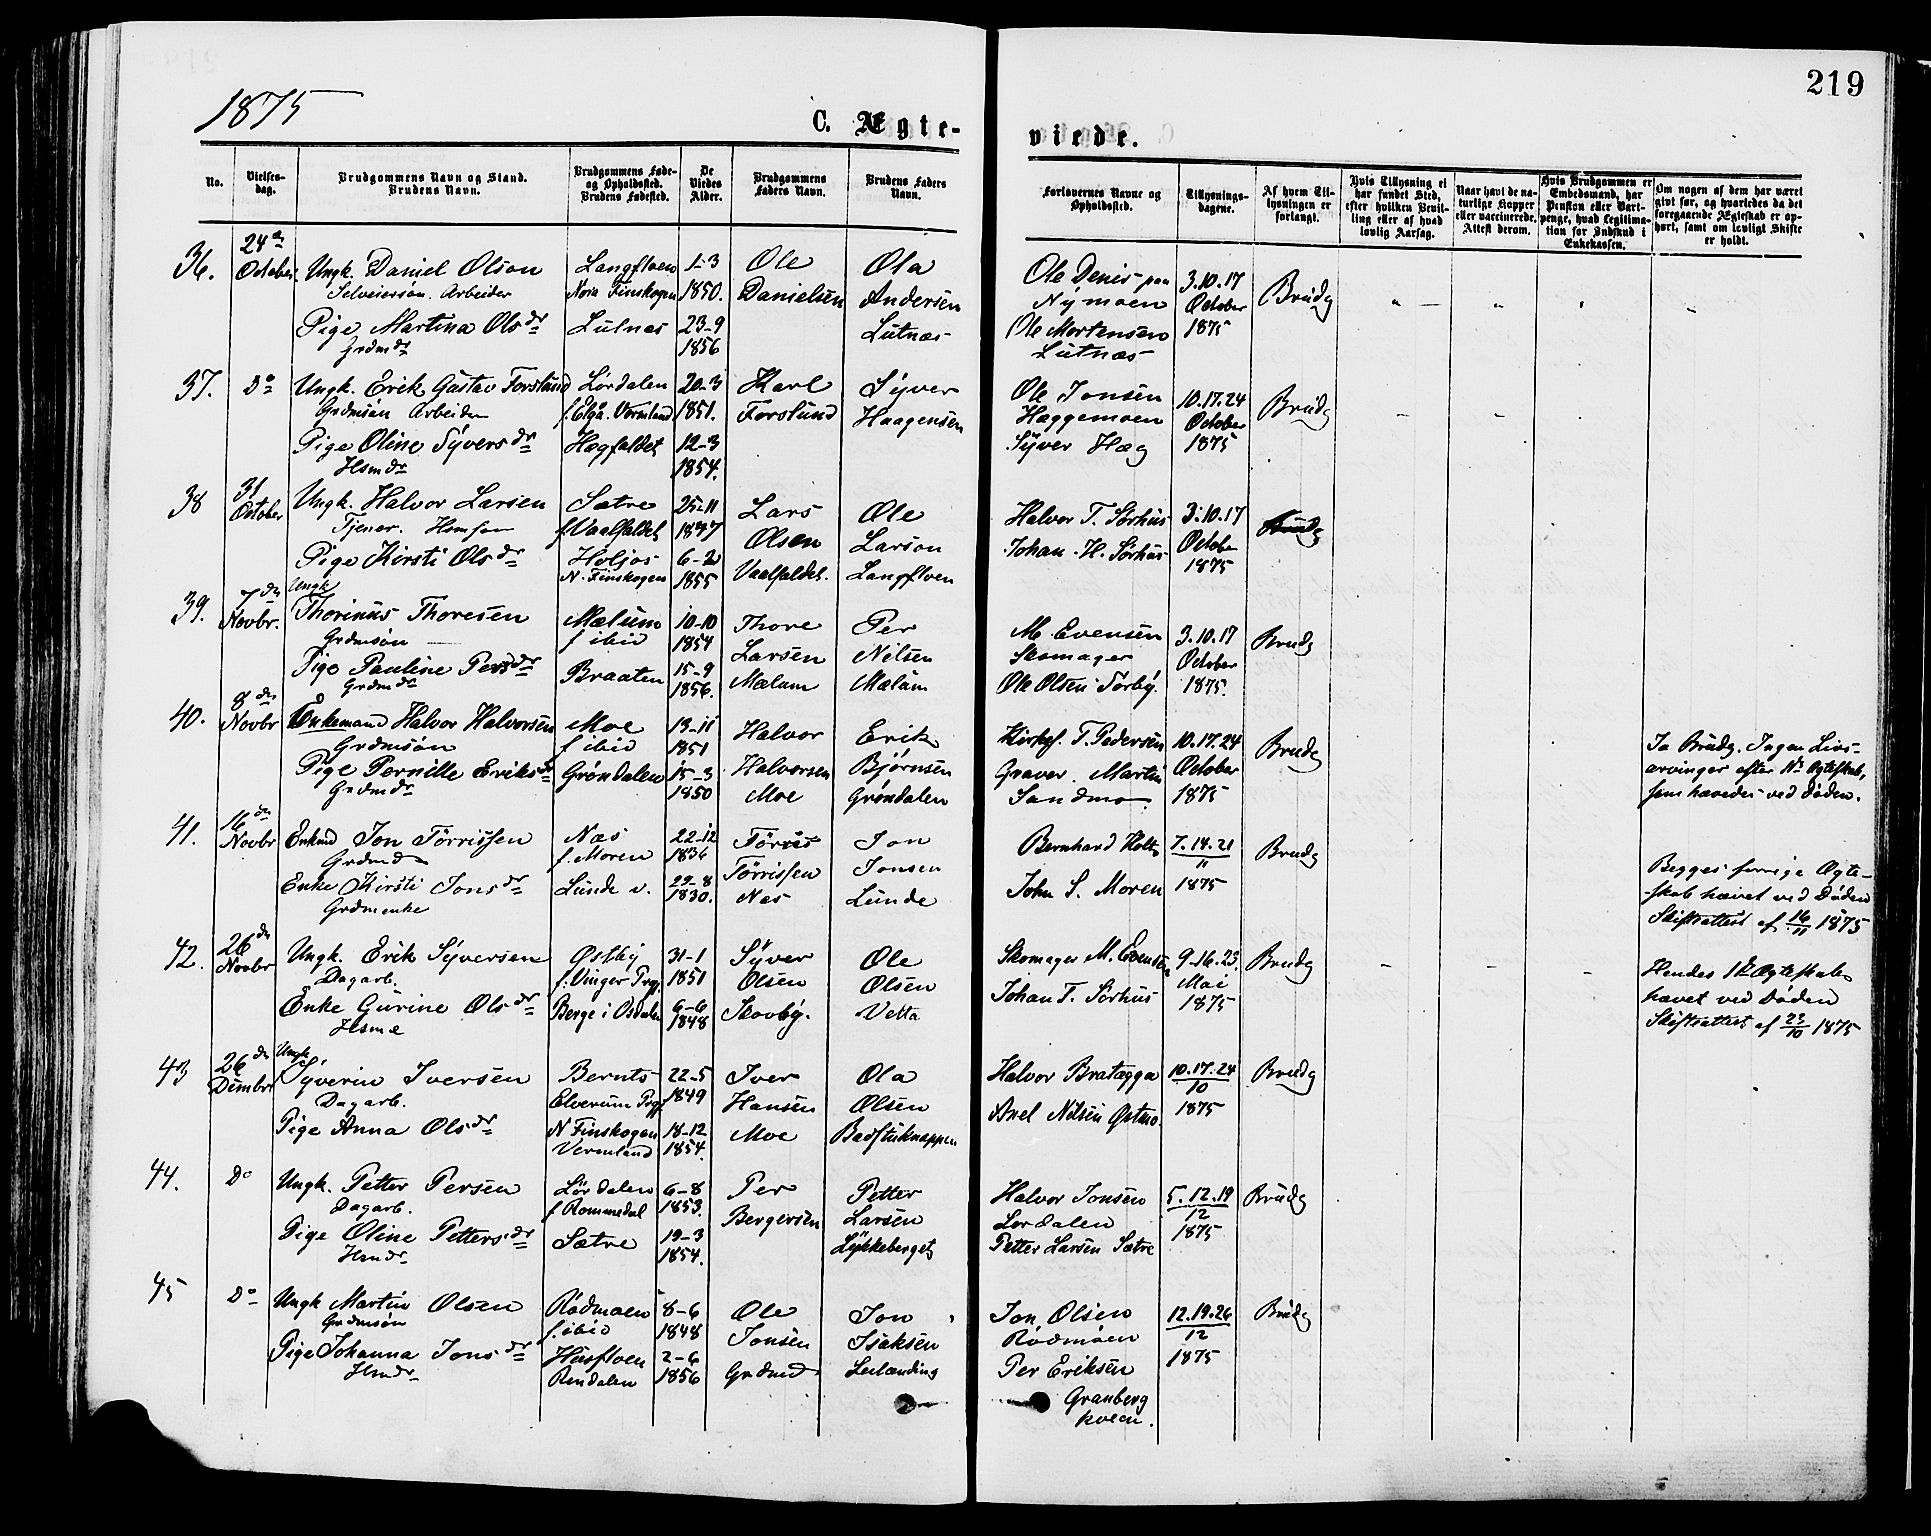 219
1875
C. Ægte-
viede.
No.
Vielses-
dag.
Brudgommens Navn og Stand.
Brudens Navn.
Brudgommens Føde-
og Opholdssted.
Brudens Fødested.
De
Viedes
Alder.
Brudgommens
Faders Navn.
Brudens Faders
Navn.
Forlovernes Navne og
Opholdssted.
Tillysnings-
dagene.
Af hvem Til-
lysningen er
forlangt.
Hvis Tillysning ei
har fundet Sted,
efter hvilken Bevil-
ling eller af hvad
lovlig Aarsag.
Naar havt de na-
turlige Kopper
eller vaccinerede.
Attest derom.
Hvis Brudgommen er
Embedsmand, har
Pension eller Vart-
penge, hvad Legitima-
tion for Indskud i
Enkekassen.
Om nogen af dem har været
givt før, og hvorledes da det
foregaaende Ægteskab er op-
hørt, samt om lovligt Skifte
er holdt.
36.
24de
October.
Ungk. Daniel Olson
Selveiersøn. Arbeider
Pige Martina Olsdr
Grdmdr
Langfloen
Nora Finskogen
Lutnæs
1-3
1850.
23-9
1856
Ole
Danielsen
Ola
Andersen
Lutnæs
Ole Denis paa
Nymoen
Ole Mortensen
Lutnæs
3.10.17
October
1875
Brudg
37.
Do
Ungk. Erik Gustav Forslund
Grdmsøn Arbeider
Pige Oline Syversdr
Hsmdr
Lørdalen
f. Elgå. Vermland
Hægfaldet
20-3
1851.
12-3
1854.
Karl
Forslund
Syver
Haagensen
Ole Jonsen
Hæggemoen
Syver Hæg
10.17.24
October
1875
Brudg
38
31
October
Ungk. Halvor Larsen
Tjener. Hsmsøn
Pige Kirsti Olsdr
Sætre
f. Vaalfaldet
Höljos
N. Finskogen
25-11
1847
6-2
1855
Lars
Olsen
Vaalfaldet.
Ole
Larson
Langfloen
Halvor T. Sørhus
Johan H. Sørhus
3.10.17
October
1875
Brudg
39.
7de
Novbr.
Ungk
Thorinus Thoresen
Grdmsøn
Pige Pauline Persdr
Grdmdr
Mælum
f. ibid
Braaten
10-10
1854
15-9
1856.
Thore
Larsen
Mælum
Per
Nilsen
Mælum
M. Evensen
Skomager
Ole Olsen Sørby.
3.10.17
October
1875.
Brudg
40.
8de
Novbr
Enkemand Halvor Halvorsen
Grdmsøn
Pige Pernille Eriksdr
Grdmdr
Moe
f. ibid
Grøndalen
13-11
1851
15-3
1850
Halvor
Halvorsen
Moe
Erik
Bjørnsen
Grøndalen
Kirkes. T. Pedersen
Graver. Martin
Sandmo
10.17.24
October
1875
Brudg
Ja Brudg. Ingen Livs-
arvinger efter 1te Ægteskab,
som hævedes ved Døden.
41.
16de
Novbr
Enkmd Jon Tørrissen
Grdmd
Enke Kirsti Jonsdr
Grdmenke
Næs
f. Moren
Lunde v.
22-12
1836
29-8
1830.
Tørris
Tørrissen
Næs
Jon
Jonsen
Lunde
Bernhard Holt
John S. Moren
7.14.21
11
1875
Brudg
Begges forrige Ægte-
skab hævet ved Døden
Skifteattest af 16/11 1875
42.
26de
Novbr
Ungk. Erik Syversen
Dagarb.
Enke Gurine Olsdr
Hsme
Østby
f. Vinger Prg.
Berge i Osdalen
31-1
1851
6-6
1848
Syver
Olsen
Skovby.
Ole
Olsen
Vetta
Skomager M. Evensen
Johan T. Sørhus
9-16.23.
Mai
1875
Brudg
Hendes 1te Ægteskab
hævet ved Døden
Skifteattest af 23/10 1875
43
26de
Dcmbr
Ungk.
Syverin Iversen
Dagarb.
Pige Anna Olsdr
Bernts
Elverum Prg.
N Finskogen
Vermland
22-5
1849
18-12
1854.
Iver
Hansen
Moe
Ola
Olsen
Badstuknappen
Halvor Bratægga
Axel Nilsen Østmo.
10.17.24
10
1875
Brudg
44.
Do
Ungk. Petter Persen
Dagarb.
Pige Oline Pettersdr
Hsmdr
Lørdalen
f. Rommedal
Sætre
6-8
1853.
19-3
1854.
Per
Bergersen
Petter
Larsen
Lykkeberget
Halvor Jonsen
Lørdalen
Petter Larsen Sætre
5.12.19
12
1875
Brudg
45
Do
Ungk Martin Olsen
Grdmsøn
Pige Johanna Jonsdr
Hsmdr
Rødmoen
f. ibid
Husfloen
Rendalen
8-6
1848
2-6
1856
Ole
Jonsen
Grdmd
Jon
Isaksen
Leilænding
Jon Olsen
Rødmoen
Per Eriksen
Granberg
kølen.
12.19.26
12
1875
Brudg